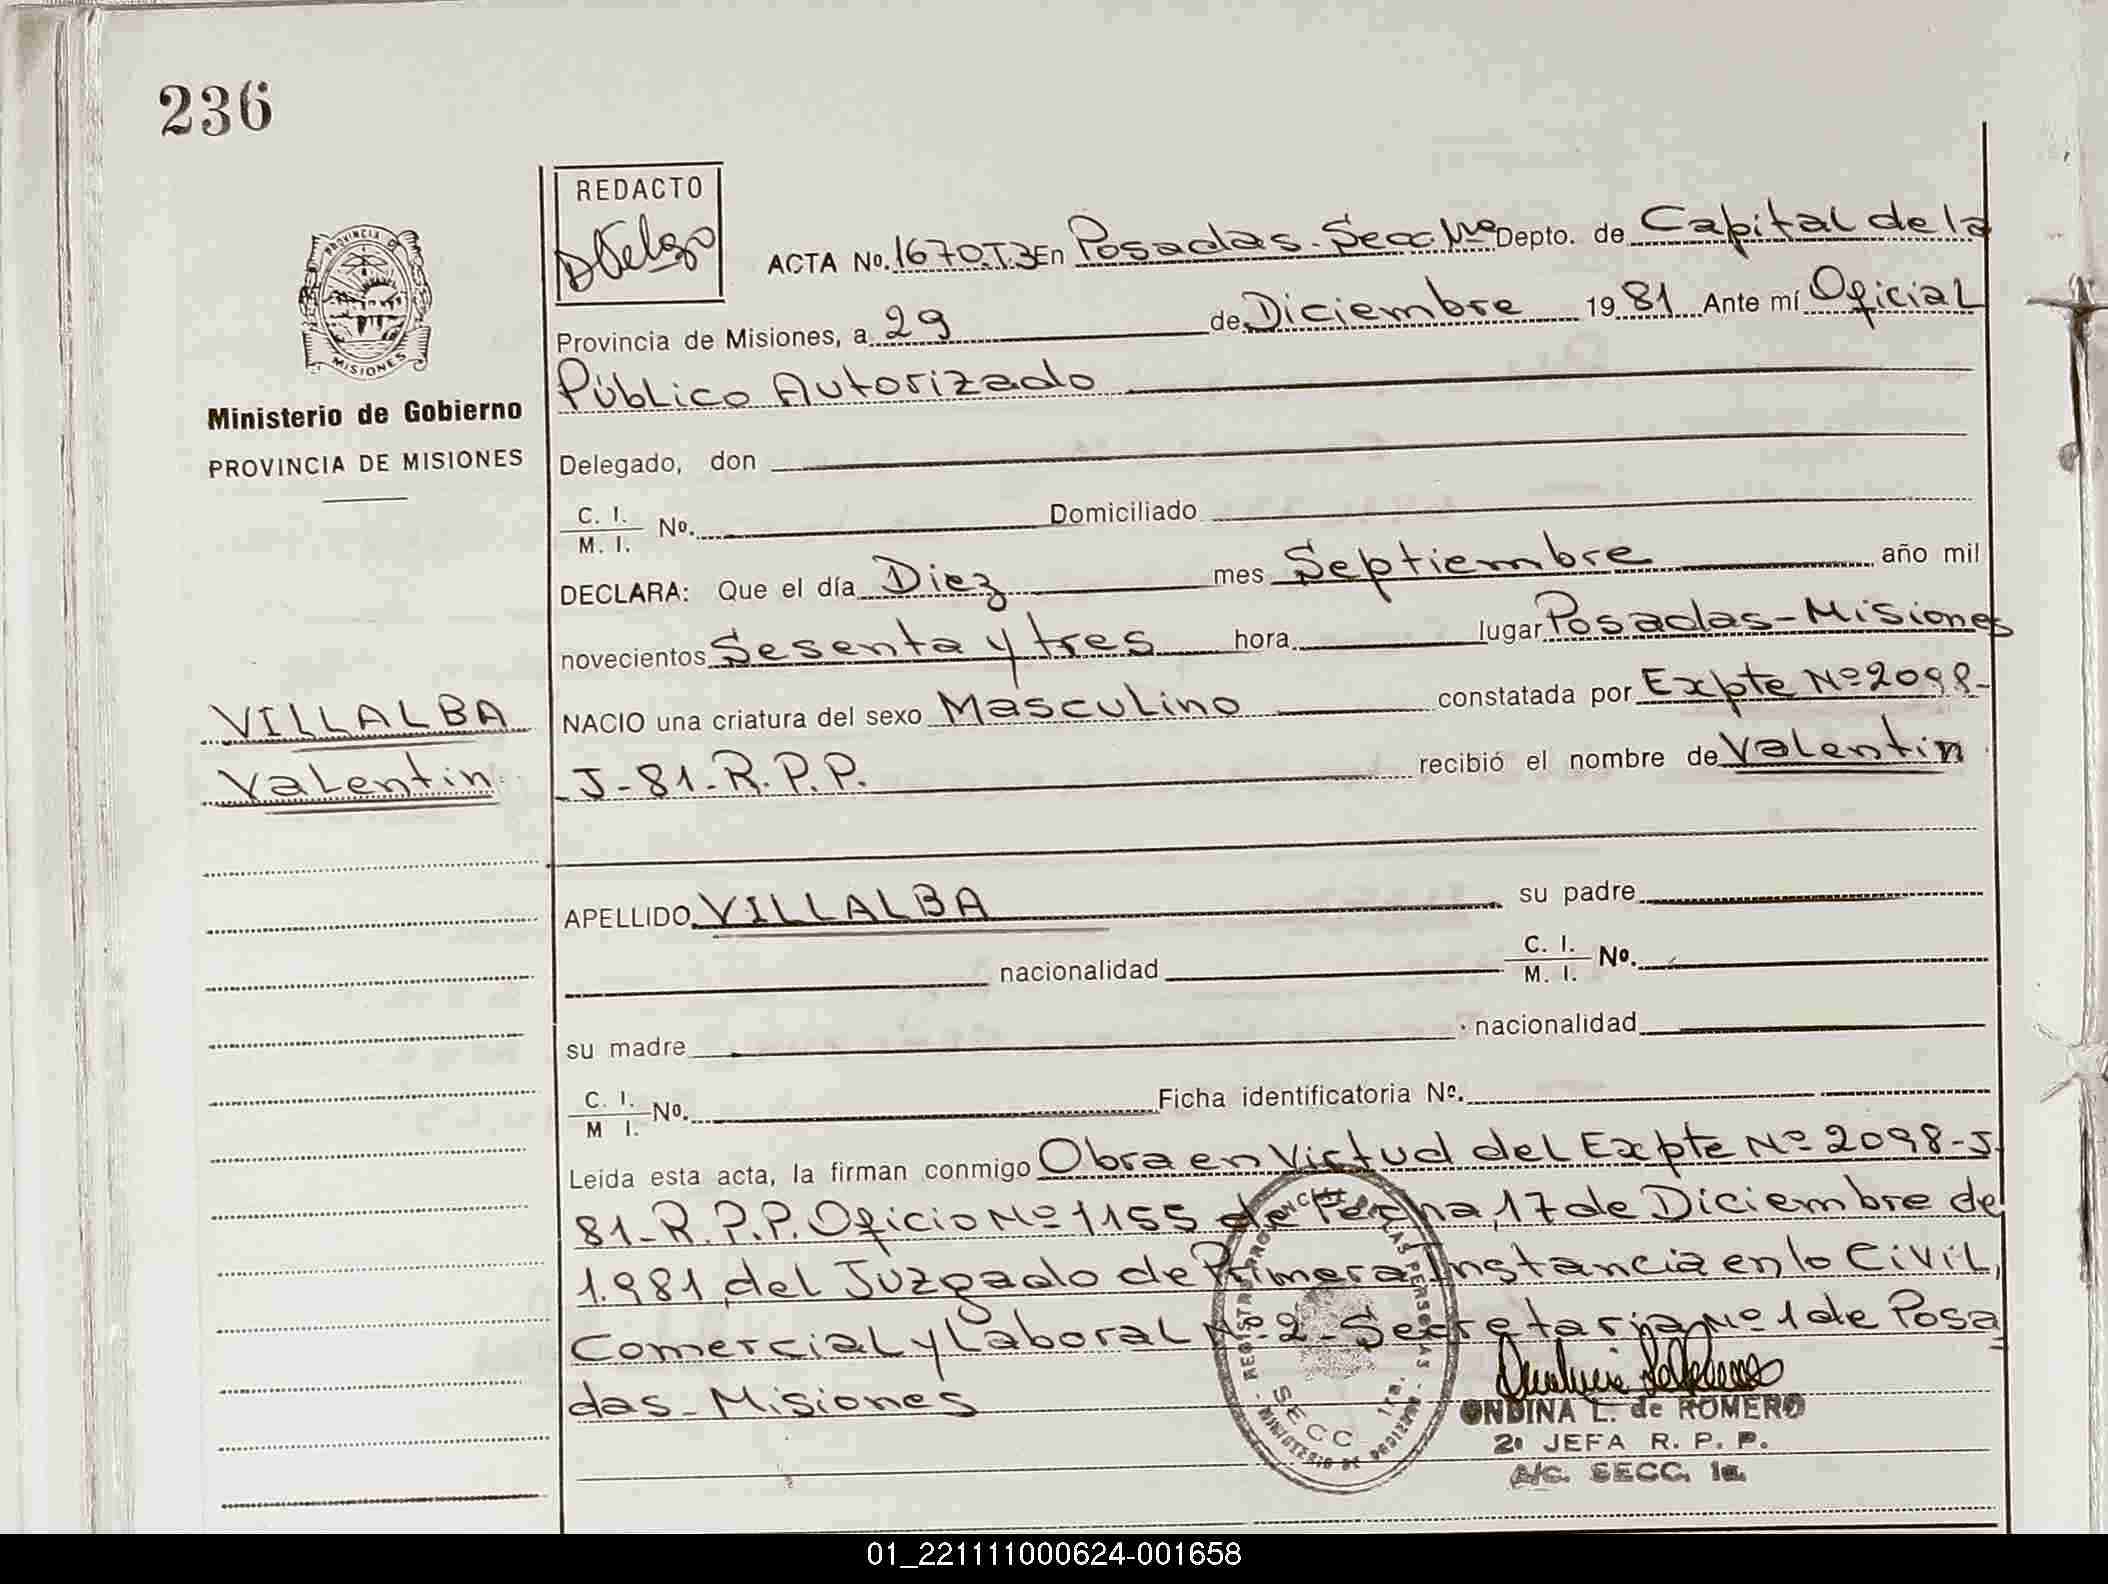 236
REDACTO
ACTA No. 1670.T.3 En Posadas. Secc. Depto. de Capital de la
Provincia de Misiones, a 29 de Diciembre 1981 Ante mí Oficial
Público Autorizado
PROVINCIA DE
MISIONES
Ministerio de Gobierno
PROVINCIA DE MISIONES
Delegado, don
C. I.
M. I. No. Domiciliado
DECLARA: Que el día Diez mes Septiembre año mil
novecientos Sesenta y tres hora lugar Posadas-Misiones
VILLALBA
Valentin
NACIO una criatura del sexo Masculino constatada por Expte Nº 2098-
J-81-R.P.P. recibió el nombre de Valentin
APELLIDO VILLALBA su padre
nacionalidad C. I.
M. I. No.
su madre nacionalidad
C. I.
M I. No. Ficha identificatoria No.
Leida esta acta, la firman conmigo Obra en Virtud del Expte Nº 2098-J-
81-R.P.P. Oficio Nº 1155 de Fecha, 17 de Diciembre de
1.981, del Juzgado de Primera Instancia en lo Civil,
Comercial y Laboral Nº 2 - Secretaria Nº 1 de Posa
das - Misiones
SECC 1ra.
ONDINA L. de ROMERO
2a JEFA R. P. P.
A/C. SECC. 1a.
01_221111000624-001658